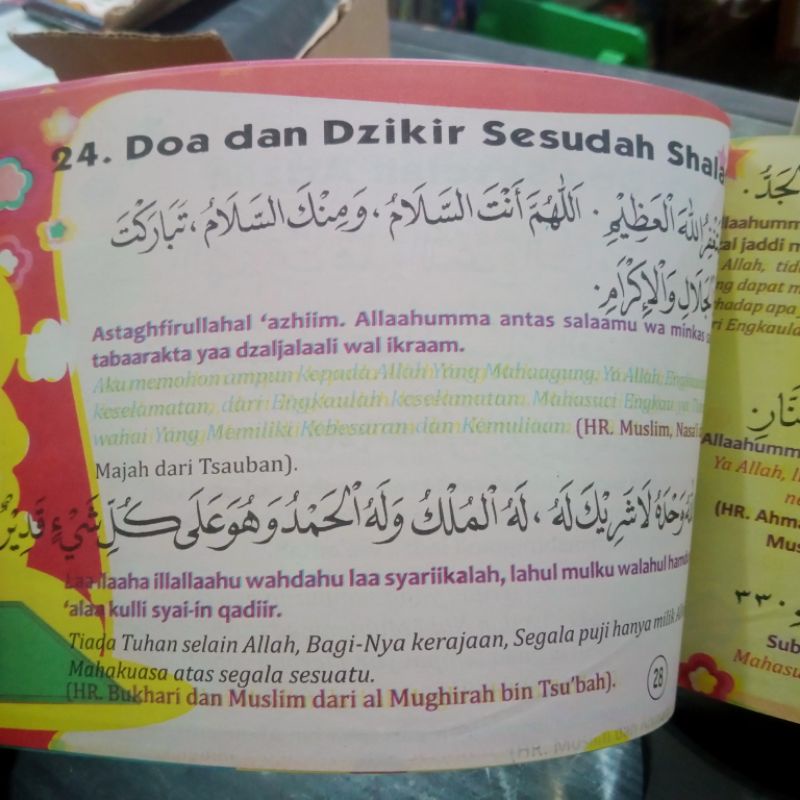 24. Doa dan Dzikir Sesudah Shala
اللهَ الْعَظِيْمِ. اَللّٰهُمَّ أَنْتَ السَّلَامُ، وَمِنْكَ السَّلَامُ، تَبَارَكْتَ
الْجَلَالِ وَالْإِكْرَامِ.
Astaghfirullahal ‘azhiim. Allaahumma antas salaamu wa minkas
tabaarakta yaa dzaljalaali wal ikraam.
Aku memohon ampun kepada Allah Yang Mahaagung. Ya Allah,
keselamatan, dari Engkaulah keselamatan. Mahasuci Engkau ya
wahai Yang Memiliki Kebesaran dan Kemuliaan. (HR. Muslim, Nasa'i
Majah dari Tsauban).
وَحْدَهُ لَا شَرِيْكَ لَهُ، لَهُ الْمُلْكُ وَلَهُ الْحَمْدُ وَهُوَ عَلَى كُلِّ شَيْءٍ قَدِيْرٌ
Laa ilaaha illallaahu wahdahu laa syariikalah, lahul mulku walahul hamdu
‘alaa kulli syai-in qadiir.
Tiada Tuhan selain Allah, Bagi-Nya kerajaan, Segala puji hanya milik
Mahakuasa atas segala sesuatu.
(HR. Bukhari dan Muslim dari al Mughirah bin Tsu’bah).
28
الْجَدُّ.
laahumm
al jaddi m
Allah, tid
ng dapat m
rhadap apa
ri Engkaula
Allaahumm
Ya Allah, l
(HR. Ahma
Mus
٣٣٠
Sub
Mahasu